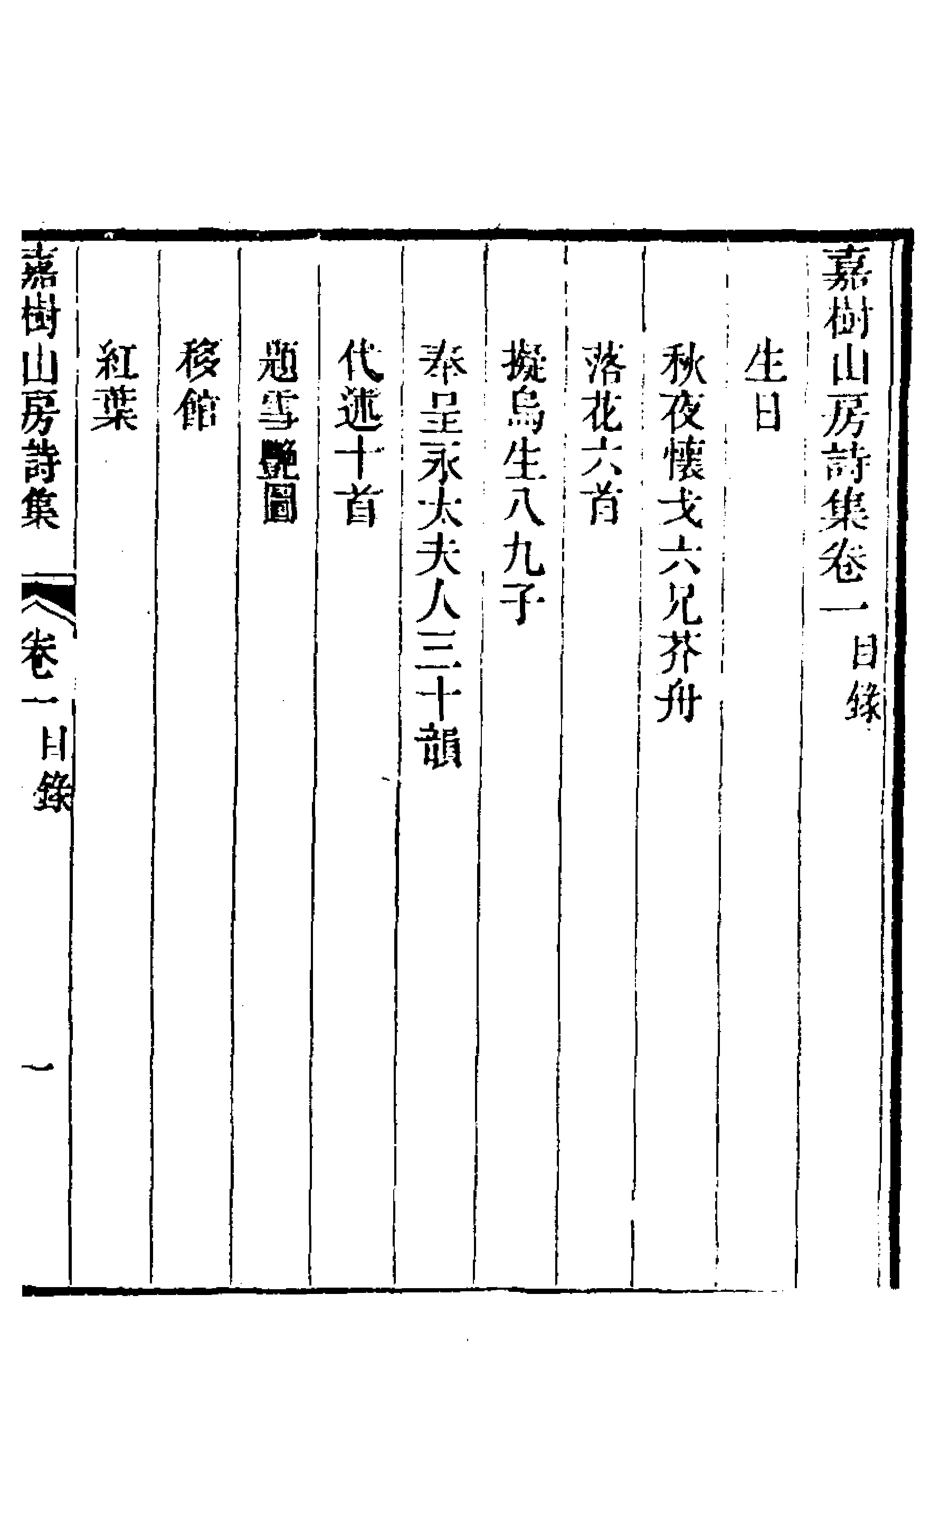 嘉樹山房詩集卷一目錄
生日
秋夜懷戈六兄芥舟
落花六首
擬烏生八九子
奉呈永太夫人三十韻
代述十首
題雪艷圖
移館
紅葉
嘉樹山房詩集 卷一目錄 一